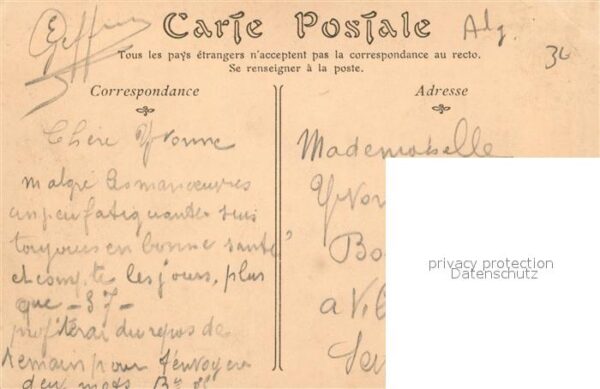 Carte Postale
Alg.
36
Tous les pays étrangers n'acceptent pas la correspondance au recto.
Se renseigner à la poste.
Correspondance
Adresse
Chère Yvonne
malgré les manœuvres
un peu fatiguantes suis
toujours en bonne santé
et compte les jours, plus
que -37-
profiterai du repos de
demain pour t'envoyer
deux mots
Mademoiselle
Yvon
Bo
a Vi
privacy protection
Datenschutz